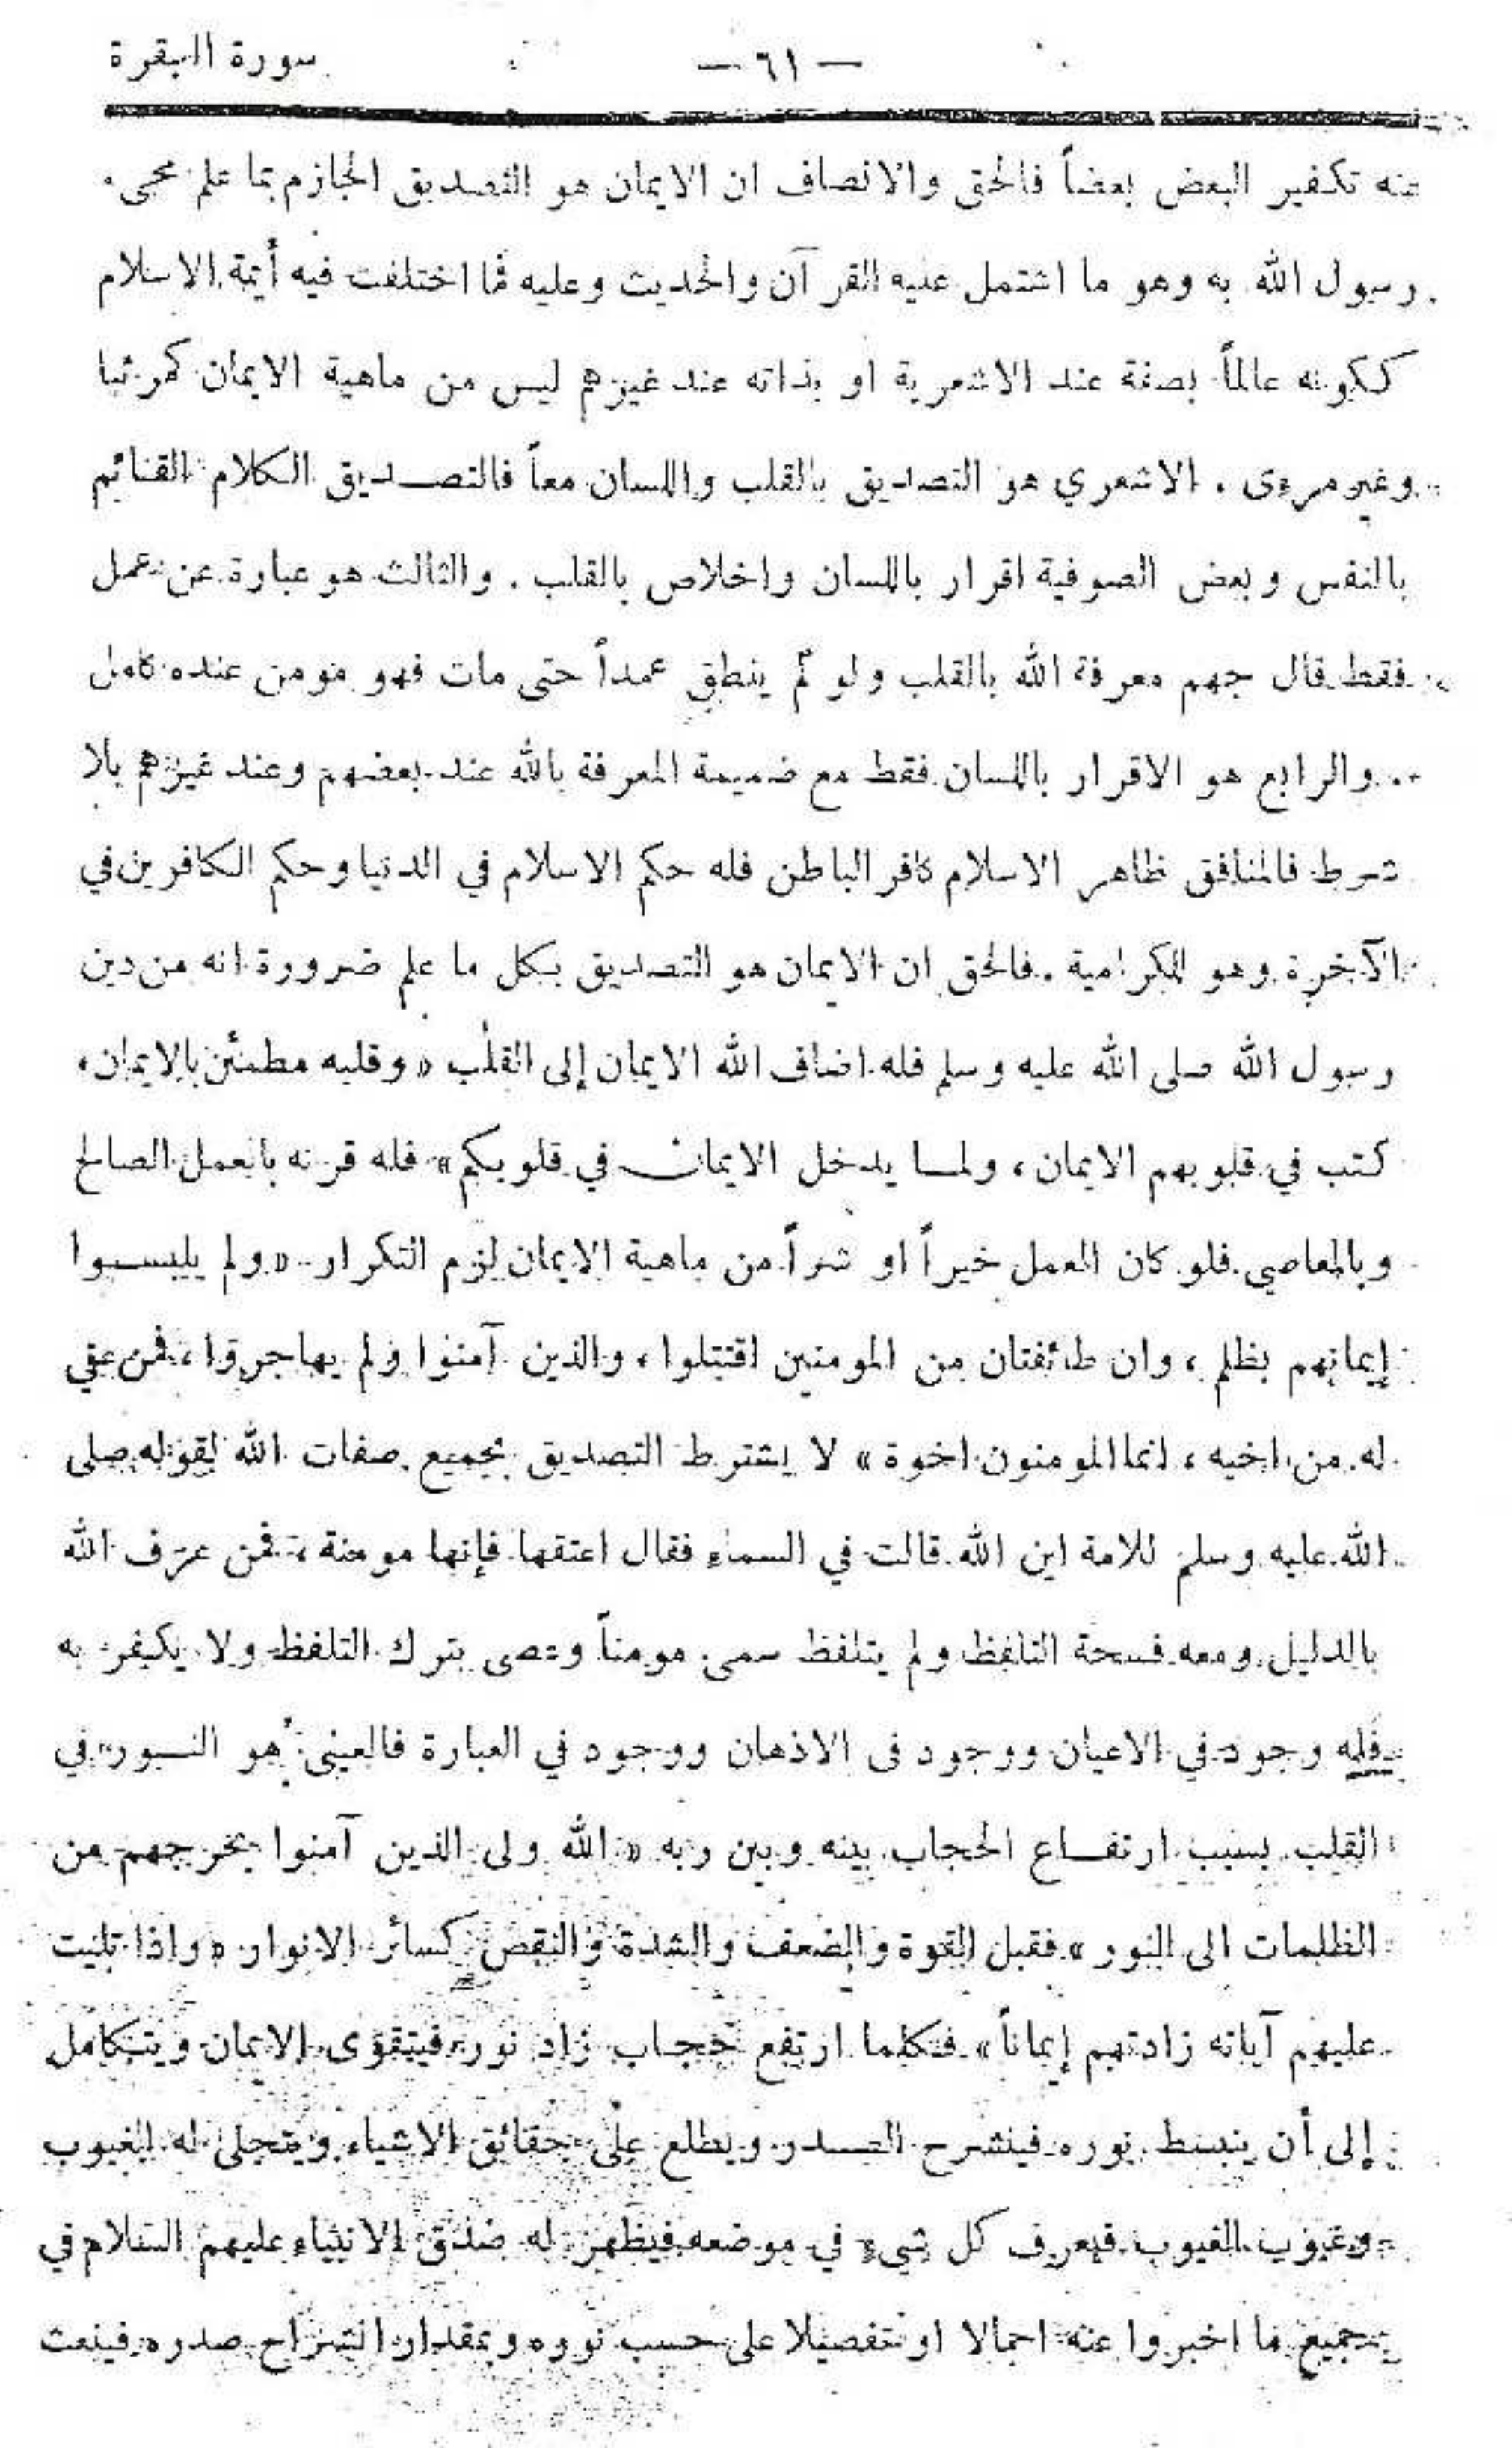 سورة البقرة
— ٦١ —
عنه تكفير البعض بعضاً فالحق والانصاف ان الايمان هو التصديق الجازم بما علم مجيء
رسول الله به وهو ما اشتمل عليه القرآن والحديث وعليه فما اختلفت فيه أيمة الاسلام
ككونه عالماً بصفة عند الاشعرية او بذاته عند غيرهم ليس من ماهية الايمان كمرئيا
وغير مرءى . الاشعري هو التصديق بالقلب واللسان معاً فالتصديق الكلام القائم
بالنفس وبعض الصوفية اقرار باللسان واخلاص بالقلب . والثالث هو عبارة عن عمل
فقط قال جهم معرفة الله بالقلب ولو لم ينطق عمداً حتى مات فهو مومن عنده كامل
والرابع هو الاقرار باللسان فقط مع ضميمة المعرفة بالله عند بعضهم وعند غيرهم بلا
شرط فالمنافق ظاهر الاسلام كافر الباطن فله حكم الاسلام في الدنيا وحكم الكافرين في
الآخرة وهو للكرامية . فالحق ان الايمان هو التصديق بكل ما علم ضرورة انه من دين
رسول الله صلى الله عليه وسلم فله اضاف الله الايمان إلى القلب « وقلبه مطمئن بالايمان ،
كتب في قلوبهم الايمان ، ولما يدخل الايمان في قلوبكم » فله قرنه بالعمل الصالح
وبالمعاصي فلو كان العمل خيراً او شراً من ماهية الايمان لزم التكرار « ولم يلبسوا
إيمانهم بظلم ، وان طائفتان من المومنين اقتتلوا ، والذين آمنوا ولم يهاجروا ، فمن عفي
له من اخيه ، انما المومنون اخوة » لا يشترط التصديق بجميع صفات الله لقوله صلى
الله عليه وسلم للامة اين الله قالت في السماء فقال اعتقها فإنها مومنة ، فمن عرف الله
بالدليل ومعه فسحة التلفظ ولم يتلفظ سمى مومناً وعصى بترك التلفظ ولا يكفر به
فله وجود في الاعيان ووجود فى الاذهان ووجود في العبارة فالعينى هو النور في
القلب بسبب ارتفاع الحجاب بينه وبين ربه « الله ولى الذين آمنوا يخرجهم من
الظلمات الى النور » فقبل القوة والضعف والشدة والنقص كسائر الانوار « واذا تليت
عليهم آياته زادتهم إيماناً » فكلما ارتفع حجاب زاد نور فيتقوى الايمان ويتكامل
إلى أن ينبسط نوره فينشرح الصدر ويطلع على حقائق الاشياء ويتجلى له الغيوب
وغيوب الغيوب فيعرف كل شيء في موضعه فيظهر له صدق الانبياء عليهم السلام في
جميع ما اخبروا عنه اجمالا او تفصيلا على حسب نوره وبمقدار انشراح صدره فينعث